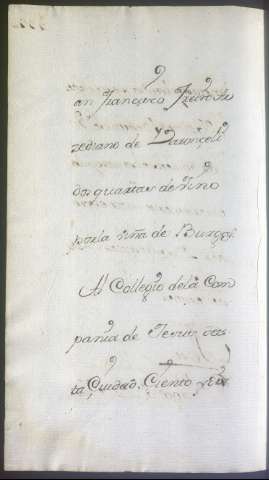 an francisco
zediano de
dos quartas de vino
por la viña de Burgos
Al Collegio de la Com
pania de Jesus des
ta Ciudad. Ciento y